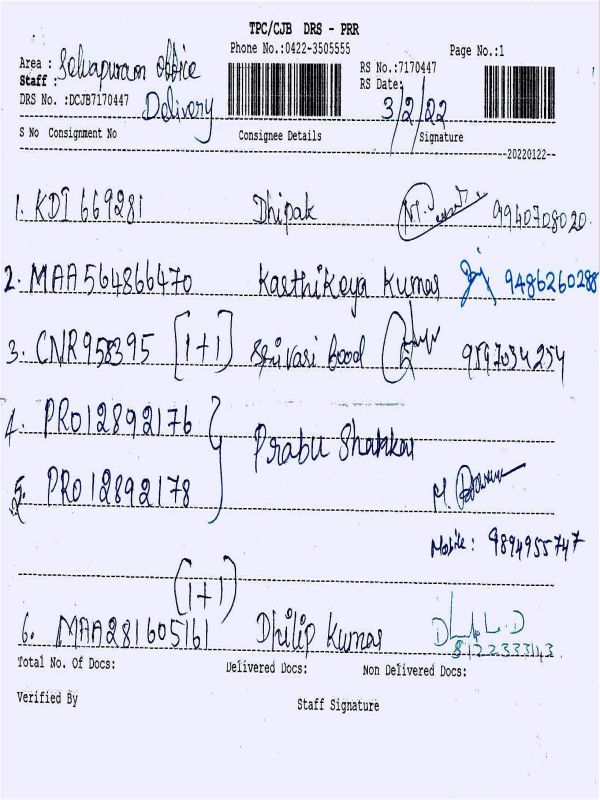 TPC/CJB DRS - PRR
Phone No.:0422-3505555 Page No.:1
Area : Selvapuram office
RS No.:7170447
Staff :
RS Date: 3/2/22
DRS No. :DCJB7170447 Delivery
S No Consignment No Consignee Details Signature
20220122
1. KDI 669281 Dhipak 9940708020
2. MAA564866470 Karthikeya Kumar 9486260288
3. CNR958395 [1+1] Srivari food 9597034254
4. PRO12892176
Prabu Shankar
5. PRO12892178
Mobile: 9894955747
[1+1]
6. MAA281605161 Dhilip Kumar
8122333143
Total No. Of Docs: Delivered Docs: Non Delivered Docs:
Verified By Staff Signature